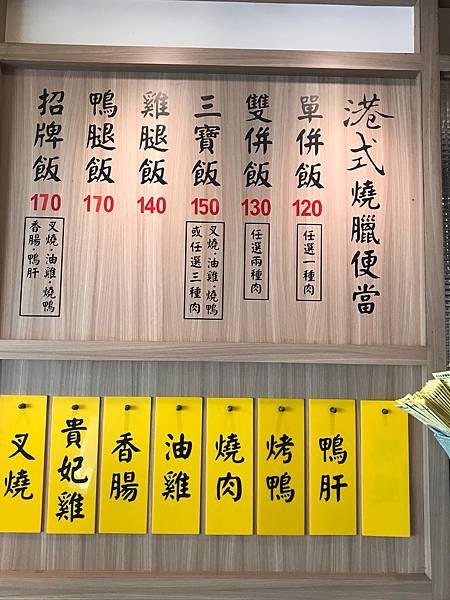 港式燒臘便當
單併飯
120
任選一種肉
雙併飯
130
任選兩種肉
三寶飯
150
叉燒·油雞·燒鴨
或任選三種肉
雞腿飯
140
鴨腿飯
170
招牌飯
170
叉燒·油雞·燒鴨
香腸·鴨肝
鴨肝
烤鴨
燒肉
油雞
香腸
貴妃雞
叉燒